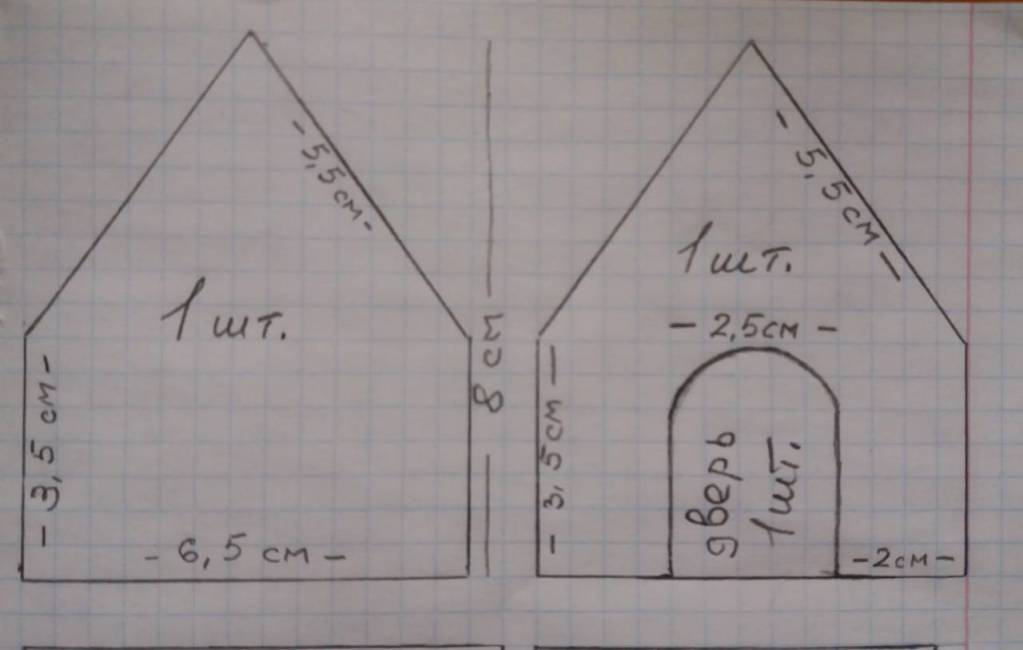 -5,5см-
1 шт.
-3,5 см-
-6,5 см-
8 см
-5,5см-
1 шт.
-2,5см-
-3,5см-
дверь
1 шт.
-2см-